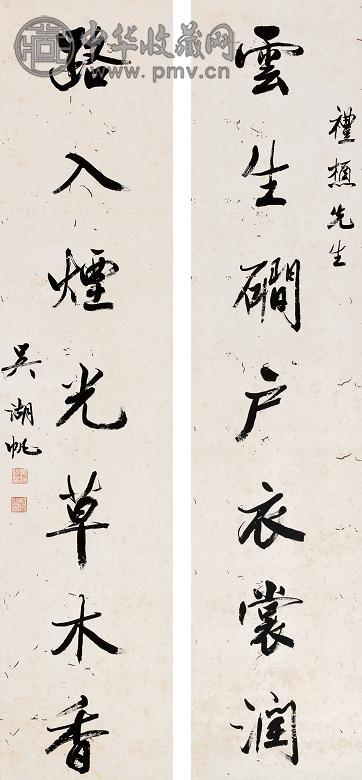 中华收藏网
www.pmv.cn
禮 先生
雲生磵户衣裳潤
路入煙光草木香
吳湖帆